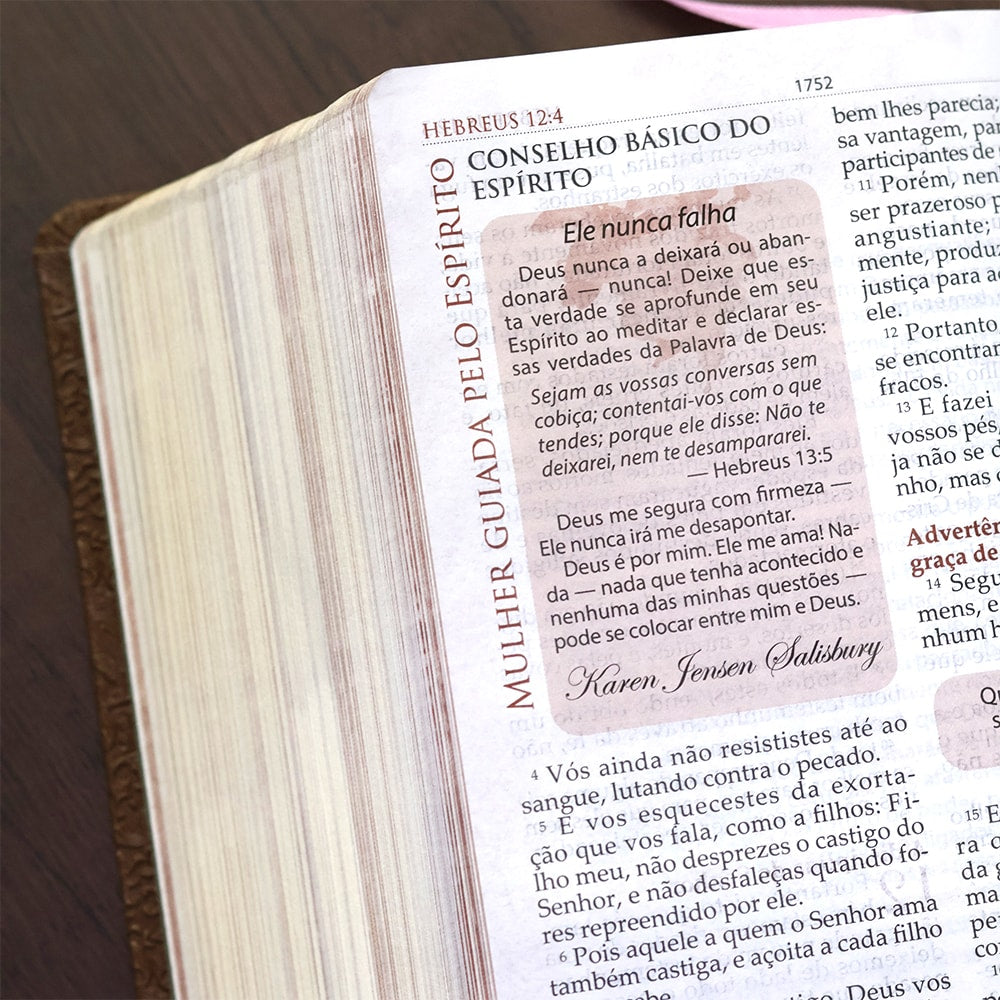 1752
HEBREUS 12:4
MULHER GUIADA PELO ESPÍRITO
CONSELHO BÁSICO DO
ESPÍRITO
Ele nunca falha
Deus nunca a deixará ou aban-
donará — nunca! Deixe que es-
ta verdade se aprofunde em seu
Espírito ao meditar e declarar es-
sas verdades da Palavra de Deus:
Sejam as vossas conversas sem
cobiça; contentai-vos com o que
tendes; porque ele disse: Não te
deixarei, nem te desampararei.
— Hebreus 13:5
Deus me segura com firmeza —
Ele nunca irá me desapontar.
Deus é por mim. Ele me ama! Na-
da — nada que tenha acontecido e
nenhuma das minhas questões —
pode se colocar entre mim e Deus.
Karen Jensen Salisbury
4 Vós ainda não resististes até ao
sangue, lutando contra o pecado.
5 E vos esquecestes da exorta-
ção que vos fala, como a filhos: Fi-
lho meu, não desprezes o castigo do
Senhor, e não desfaleças quando fo-
res repreendido por ele.
6 Pois aquele a quem o Senhor ama
também castiga, e açoita a cada filho
Deus vos
bem lhes parecia;
sa vantagem, par
participantes de
11 Porém, nenh
ser prazeroso p
angustiante;
mente, produz
justiça para aq
ele.
12 Portanto
se encontram
fracos.
13 E fazei
vossos pés,
ja não se d
nho, mas
Advertên
graça de
14 Segu
mens, e
nhum h
Qu
s
15 E
ra
da g
ma
pe
co